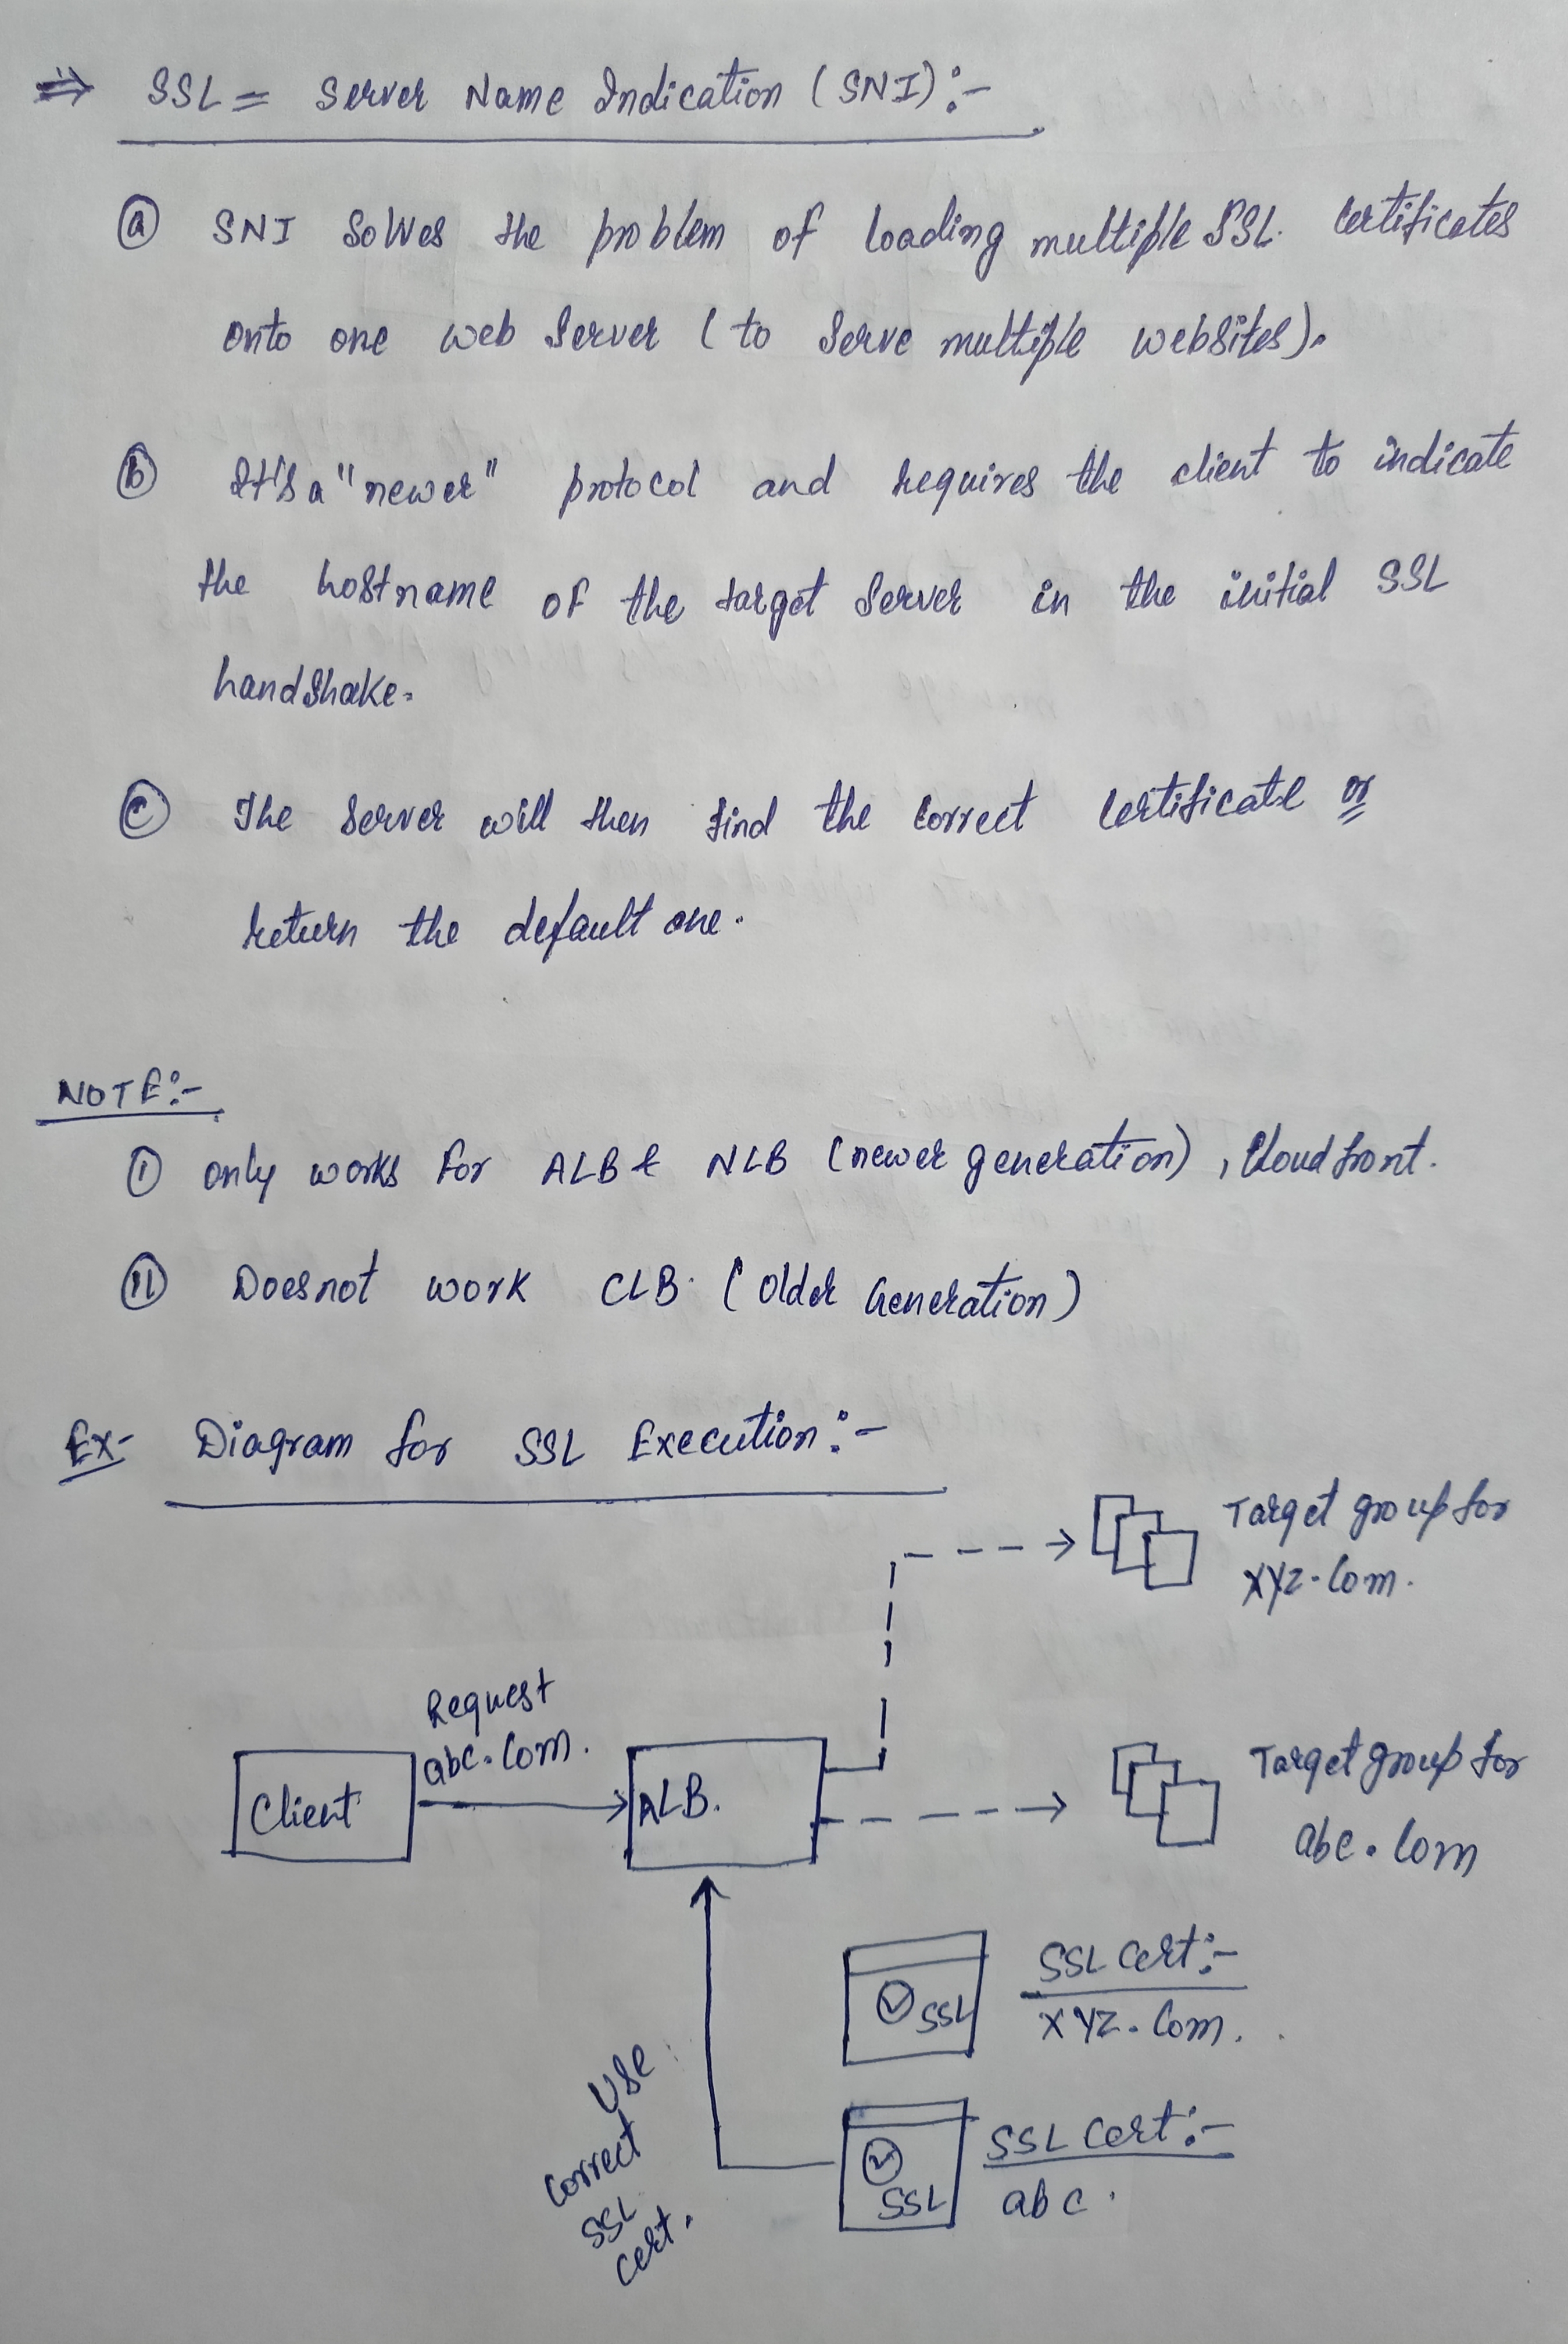 ⇒ SSL = Server Name Indication (SNI):-
ⓐ SNI Solves the problem of loading multiple SSL. Certificates
onto one web Server (to Serve multiple websites).
ⓑ It's a "newer" protocol and requires the client to indicate
the hostname of the target Server in the initial SSL
handshake.
ⓒ The Server will then find the correct certificate or
return the default one.
NOTE:-
(I) only works for ALB & NLB (newer generation), Cloudfront.
(II) Does not work CLB. (Older Generation)
Ex- Diagram for SSL Execution:-
Target group for
XYZ.com.
Request
abc.com.
Client
ALB.
Target group for
abc.com
SSL
SSL Cert:-
XYZ.com.
Use
Correct
SSL
Cert.
SSL
SSL Cert:-
abc.